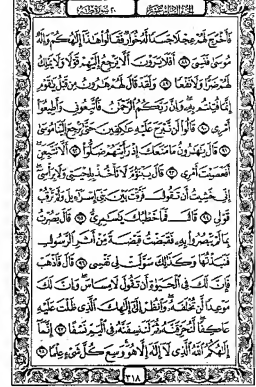 الجزء السادس عشر سورة طه ٢٠
فَأَخْرَجَ لَهُمْ عِجْلًا جَسَدًا لَّهُ خُوَارٌ فَقَالُوا۟ هَٰذَآ إِلَٰهُكُمْ وَإِلَٰهُ
مُوسَىٰ فَنَسِىَ ٨٨ أَفَلَا يَرَوْنَ أَلَّا يَرْجِعُ إِلَيْهِمْ قَوْلًا وَلَا يَمْلِكُ
لَهُمْ ضَرًّا وَلَا نَفْعًا ٨٩ وَلَقَدْ قَالَ لَهُمْ هَٰرُونُ مِن قَبْلُ يَٰقَوْمِ
إِنَّمَا فُتِنتُم بِهِۦ وَإِنَّ رَبَّكُمُ ٱلرَّحْمَٰنُ فَٱتَّبِعُونِى وَأَطِيعُوٓا۟
أَمْرِى ٩٠ قَالُوا۟ لَن نَّبْرَحَ عَلَيْهِ عَٰكِفِينَ حَتَّىٰ يَرْجِعَ إِلَيْنَا مُوسَىٰ
٩١ قَالَ يَٰهَٰرُونُ مَا مَنَعَكَ إِذْ رَأَيْتَهُمْ ضَلُّوٓا۟ ٩٢ أَلَّا تَتَّبِعَنِ
أَفَعَصَيْتَ أَمْرِى ٩٣ قَالَ يَبْنَؤُمَّ لَا تَأْخُذْ بِلِحْيَتِى وَلَا بِرَأْسِىٓ
إِنِّى خَشِيتُ أَن تَقُولَ فَرَّقْتَ بَيْنَ بَنِىٓ إِسْرَٰٓءِيلَ وَلَمْ تَرْقُبْ
قَوْلِى ٩٤ قَالَ فَمَا خَطْبُكَ يَٰسَٰمِرِىُّ ٩٥ قَالَ بَصُرْتُ
بِمَا لَمْ يَبْصُرُوا۟ بِهِۦ فَقَبَضْتُ قَبْضَةً مِّنْ أَثَرِ ٱلرَّسُولِ
فَنَبَذْتُهَا وَكَذَٰلِكَ سَوَّلَتْ لِى نَفْسِى ٩٦ قَالَ فَٱذْهَبْ
فَإِنَّ لَكَ فِى ٱلْحَيَوٰةِ أَن تَقُولَ لَا مِسَاسَ وَإِنَّ لَكَ
مَوْعِدًا لَّن تُخْلَفَهُۥ وَٱنظُرْ إِلَىٰٓ إِلَٰهِكَ ٱلَّذِى ظَلْتَ عَلَيْهِ
عَاكِفًا لَّنُحَرِّقَنَّهُۥ ثُمَّ لَنَنسِفَنَّهُۥ فِى ٱلْيَمِّ نَسْفًا ٩٧ إِنَّمَآ
إِلَٰهُكُمُ ٱللَّهُ ٱلَّذِى لَآ إِلَٰهَ إِلَّا هُوَ وَسِعَ كُلَّ شَىْءٍ عِلْمًا ٩٨
٣١٨